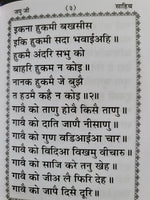 जपु जी
(३)
साहिब
इकना हुकमी बखसीस
इकि हुकमी सदा भवाईअहि ॥
हुकमै अंदरि सभु को
बाहरि हुकम न कोइ ॥
नानक हुकमै जे बुझै
त हउमै कहै न कोइ ॥२॥
गावै को ताणु होवै किसै ताणु ॥
गावै को दाति जाणै नीसाणु ॥
गावै को गुण वडिआईआ चार ॥
गावै को विदिआ विखमु वीचारु ॥
गावै को साजि करे तनु खेह ॥
गावै को जीअ लै फिरि देह ॥
गावै को जापै दिसै दूरि ॥